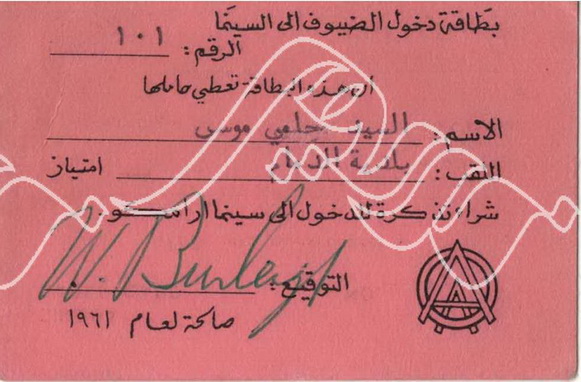 بطاقة دخول الضيوف الى السينما
الرقم: ١٠١
ان هذه البطاقة تعطي حاملها
الاسم: السيد حلمي موسى
اللقب: بلدية الدمام امتياز
شراء تذكرة للدخول الى سينما ارامكو.
التوقيع:
صالحة لعام ١٩٦١